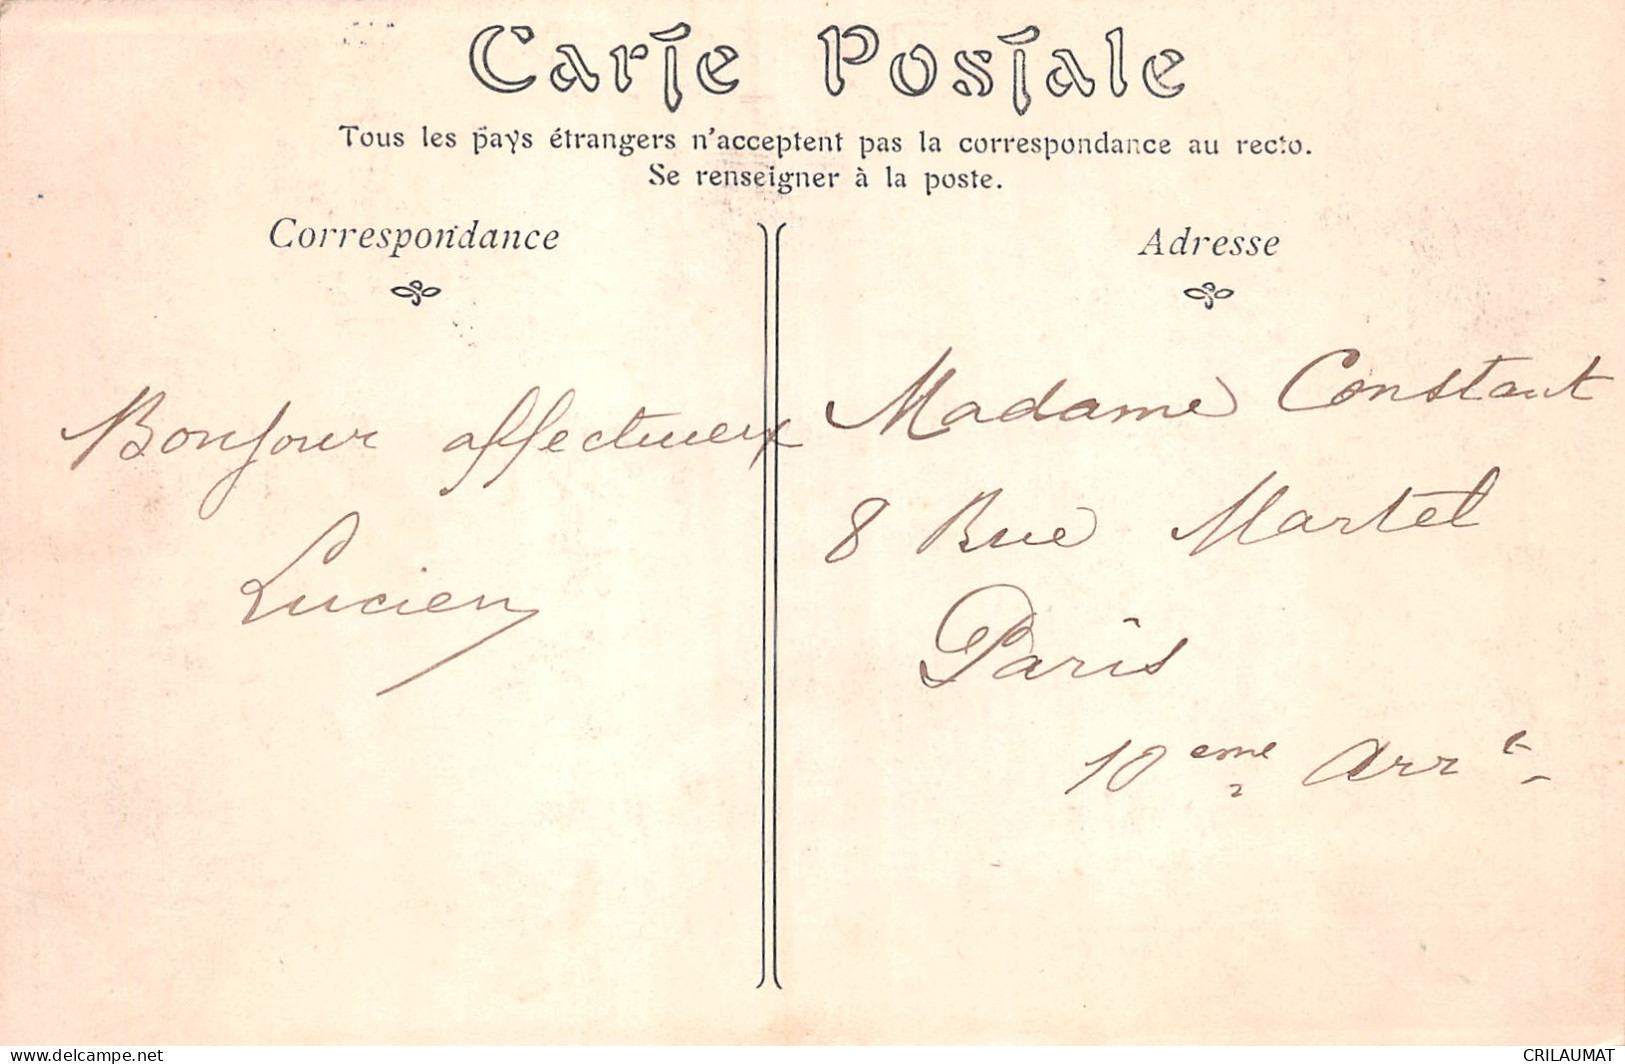 Carte Postale
Tous les pays étrangers n'acceptent pas la correspondance au recto.
Se renseigner à la poste.
Correspondance
Bonjour affectueux
Lucien
Adresse
Madame Constant
8 Rue Martel
Paris
10eme Arrt
delcampe.net
CRILAUMAT